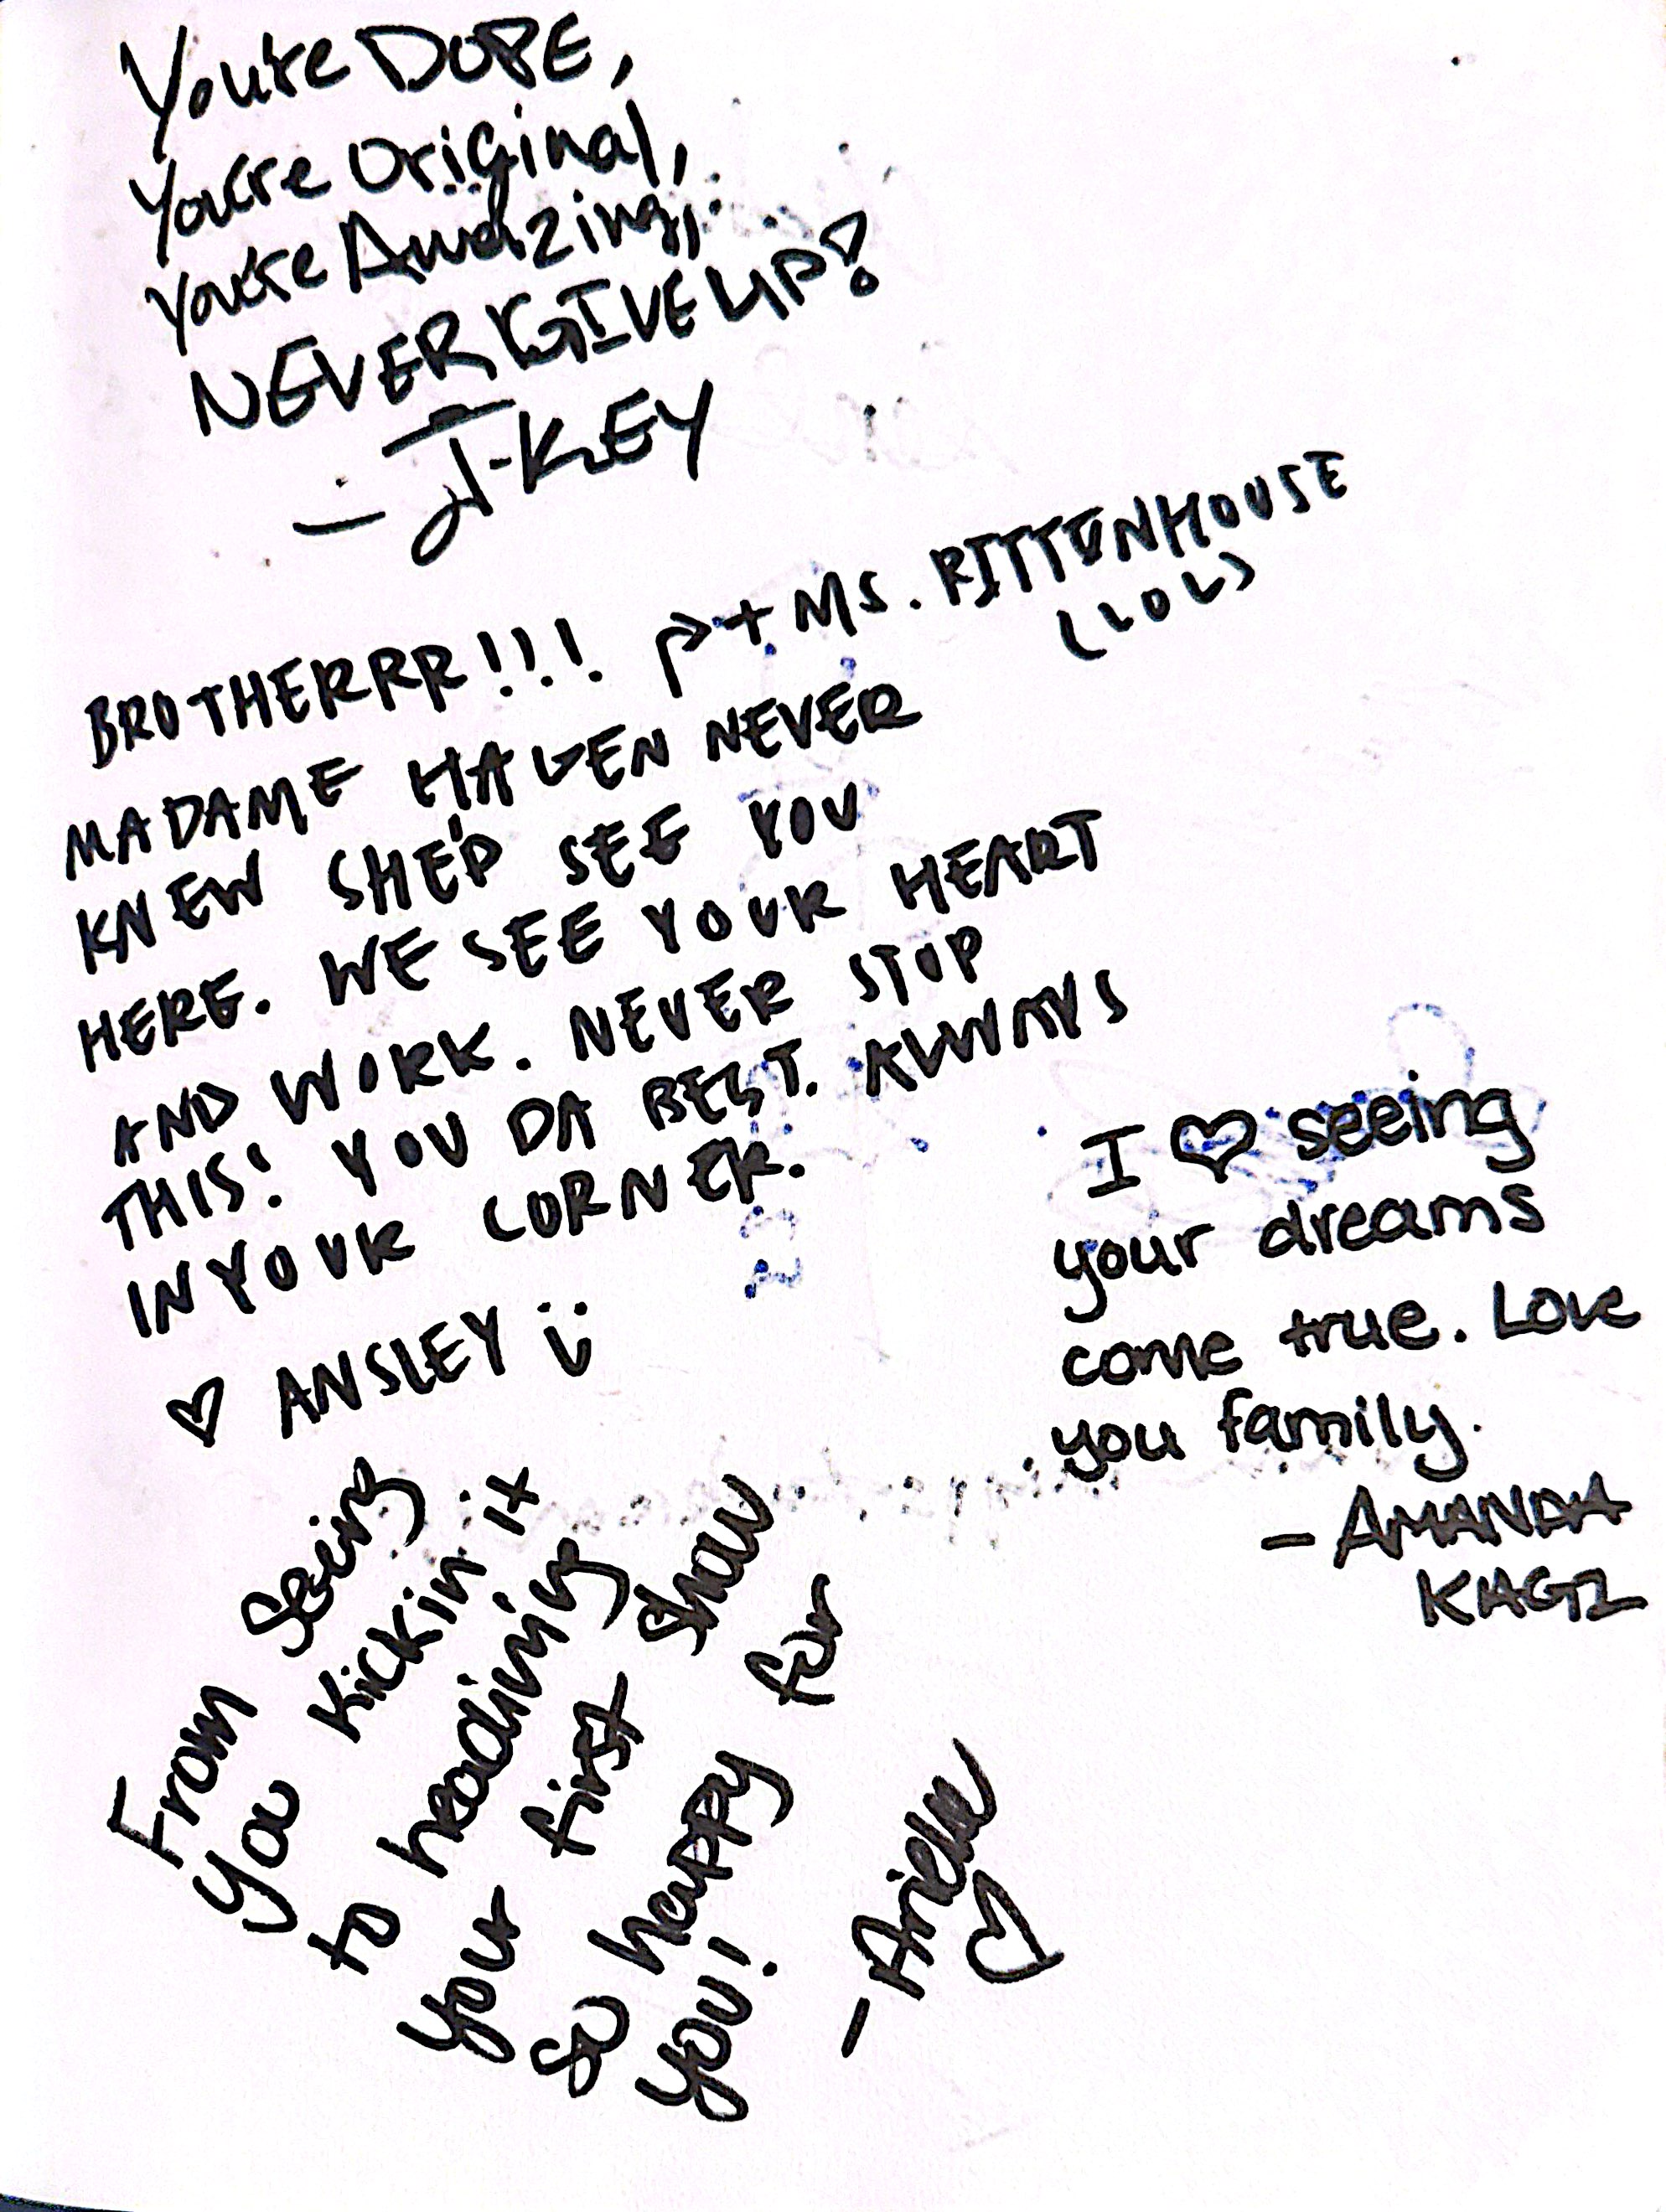 You're DOPE,
You're Original,
You're Amazing,
NEVER GIVE UP!
- J-KEY
+ MS. RITTENHOUSE
(LOL)
BROTHERRR!!!
MADAME HAVEN NEVER
KNEW SHE'D SEE YOU
HERE. WE SEE YOUR HEART
AND WORK. NEVER STOP
THIS! YOU DA BEST. ALWAYS
IN YOUR CORNER.
♡ ANSLEY :)
I ♡ seeing
your dreams
come true. Love
you family.
- AMANDA
KAGZ
From seeing
you kickin it
to headlining
your first show
so happy for
you!
- Arielle